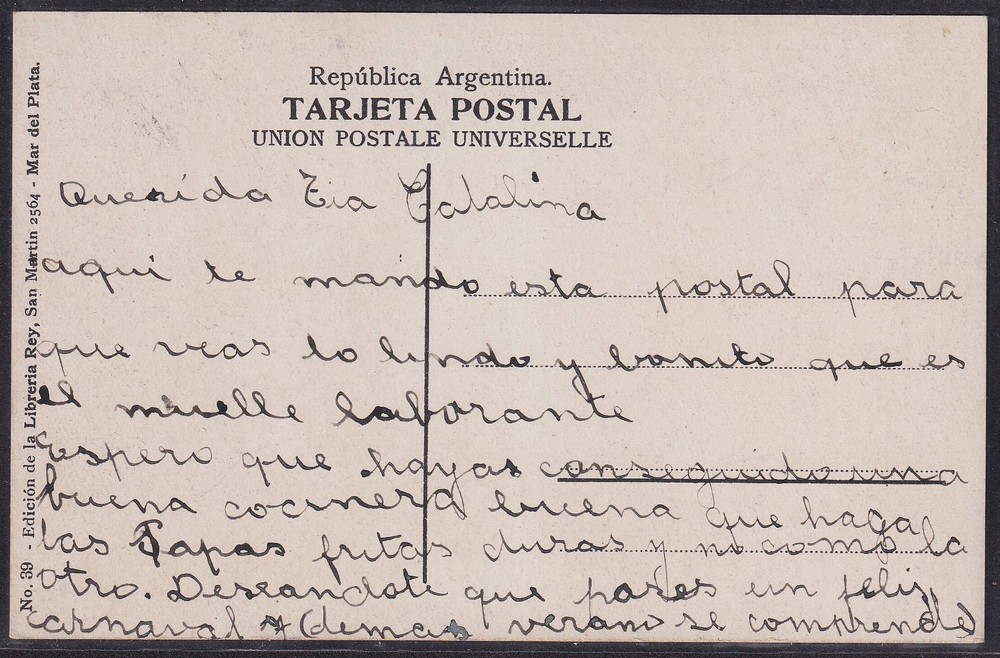 República Argentina.
TARJETA POSTAL
UNION POSTALE UNIVERSELLE
No. 39 - Edición de la Librería Rey, San Martin 2564 - Mar del Plata.
Querida Tia Catalina
aqui te mando esta postal para
que veas lo lindo y bonito que es
el muelle laborante
Espero que hayas conseguido una
buena cocinera buena que haga
las Papas fritas duras y no como la
otro. Deseandote que pases un feliz
carnaval y (demas verano se comprende)